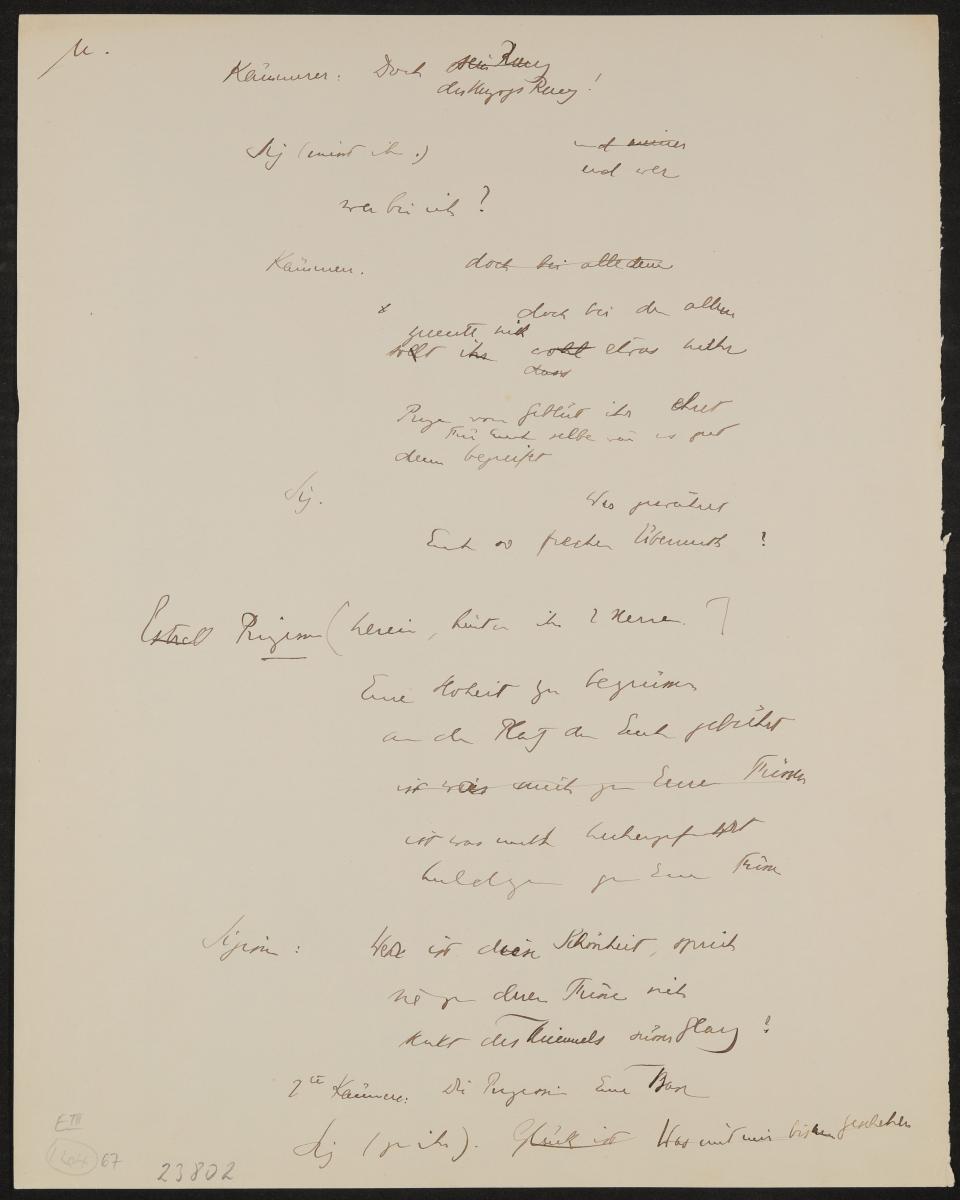 u.
Kämmerer: Doch sein Rang
des Herzogs Rang!
Sig (misst ihn.) und meiner
und wer
wer bin ich?
Kämmer. doch bei alledem
doch bei dem allem
ziemte sich
wollt ihr wohl etwas mehr
dass
Prinzen vom Geblüt ihr ehret
Für Euch selbe wär es gut
denn begreifet
Sig. Was gewähret
Euch so frechen Übermuth?
Estrell Prinzessin (herein, hinter ihr 2 Herren.)
Eure Hoheit zu begrüssen
an dem Platz der Euch gebührt
ist was mich zu Euren Füssen
ist was mich hiehergeführt
huldigen zu Euren Füssen
Sigism: Wer ist diese Schönheit, sprich
sie zu deren Füssen sich
senkt des Himmels süsser Glanz!
2te Kämmerer: Die Prinzessin Eure Base
Sig (zu ihr). Glück ist Was mit mir bisher geschehen
E III
67
23802